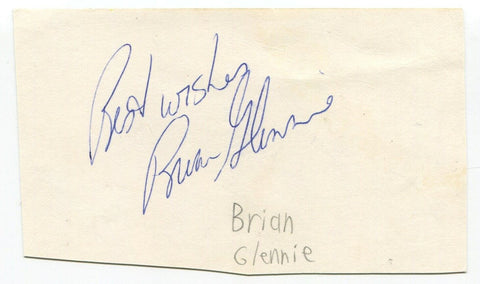 Best wishes
Brian Glennie
Brian
Glennie